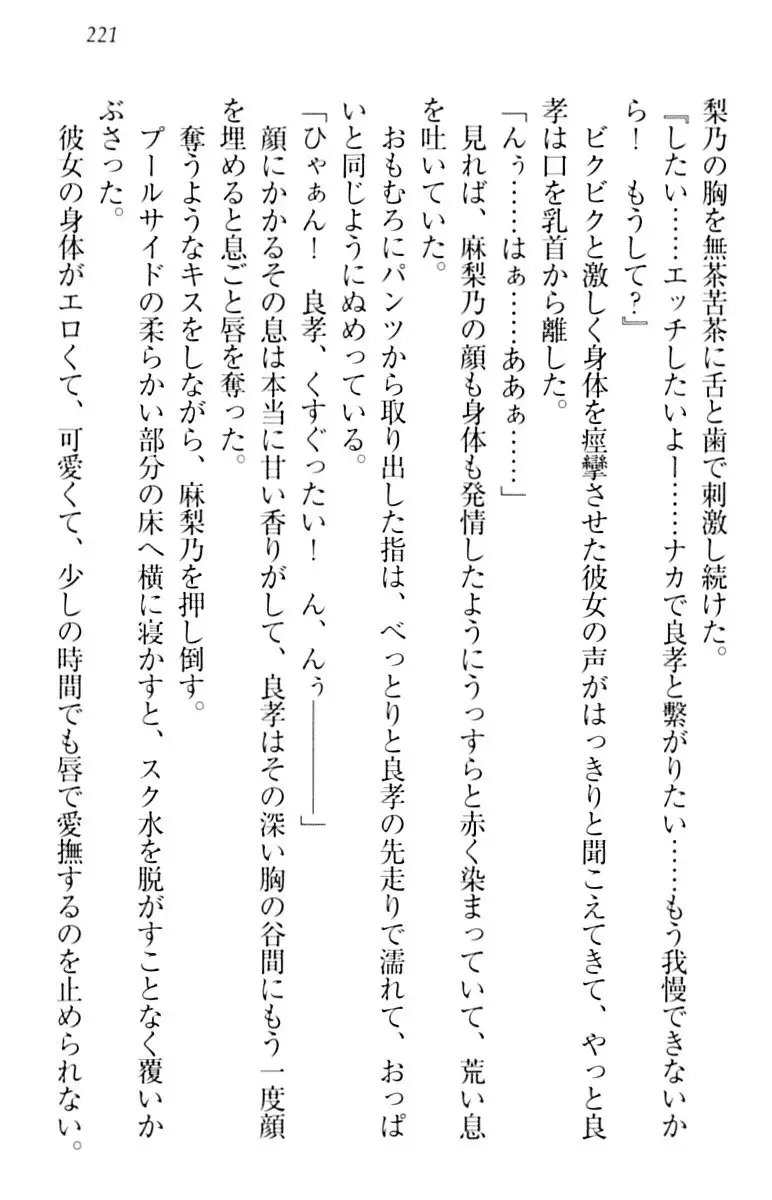 221
梨乃の胸を無茶苦茶に舌と歯で刺激し続けた。
『したい……エッチしたいよー……ナカで良孝と繋がりたい……もう我慢できないか
ら！　もうして？』
ビクビクと激しく身体を痙攣させた彼女の声がはっきりと聞こえてきて、やっと良
孝は口を乳首から離した。
「んぅ……はぁ……ああぁ……」
見れば、麻梨乃の顔も身体も発情したようにうっすらと赤く染まっていて、荒い息
を吐いていた。
おもむろにパンツから取り出した指は、べっとりと良孝の先走りで濡れて、おっぱ
いと同じようにぬめっている。
「ひゃぁん！　良孝、くすぐったい！　ん、んぅ――――」
顔にかかるその息は本当に甘い香りがして、良孝はその深い胸の谷間にもう一度顔
を埋めると息ごと唇を奪った。
奪うようなキスをしながら、麻梨乃を押し倒す。
プールサイドの柔らかい部分の床へ横に寝かすと、スク水を脱がすことなく覆いか
ぶさった。
彼女の身体がエロくて、可愛くて、少しの時間でも唇で愛撫するのを止められない。